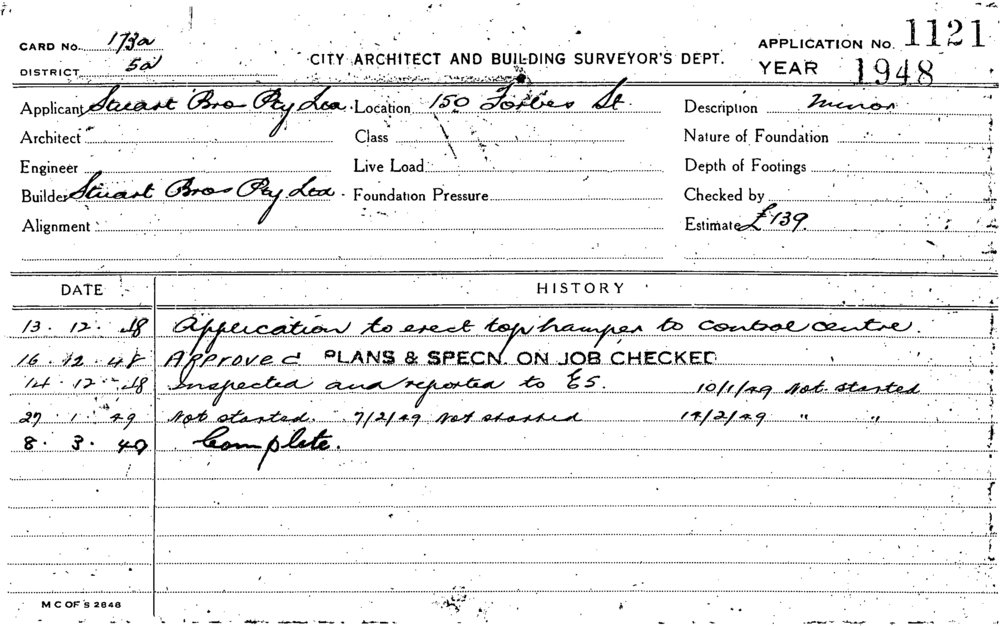 CARD No. 173a
DISTRICT 5a
CITY ARCHITECT AND BUILDING SURVEYOR'S DEPT.
APPLICATION No. 1121
YEAR 1948
Applicant Stuart Bros Pty Ltd. Location 150 Forbes St. Description Minor
Architect Class Nature of Foundation
Engineer Live Load Depth of Footings
Builder Stuart Bros Pty Ltd. Foundation Pressure Checked by
Alignment Estimate £139.
DATE HISTORY
13.12.48 Application to erect top hamper to control centre.
16.12.48 Approved PLANS & SPECN. ON JOB CHECKED
14.12.48 Inspected and reported to ES. 10/1/49 Not started
27.1.49 Not started. 7/2/49 Not started 14/2/49 " "
8.3.49 Complete.
M C OF S 2848